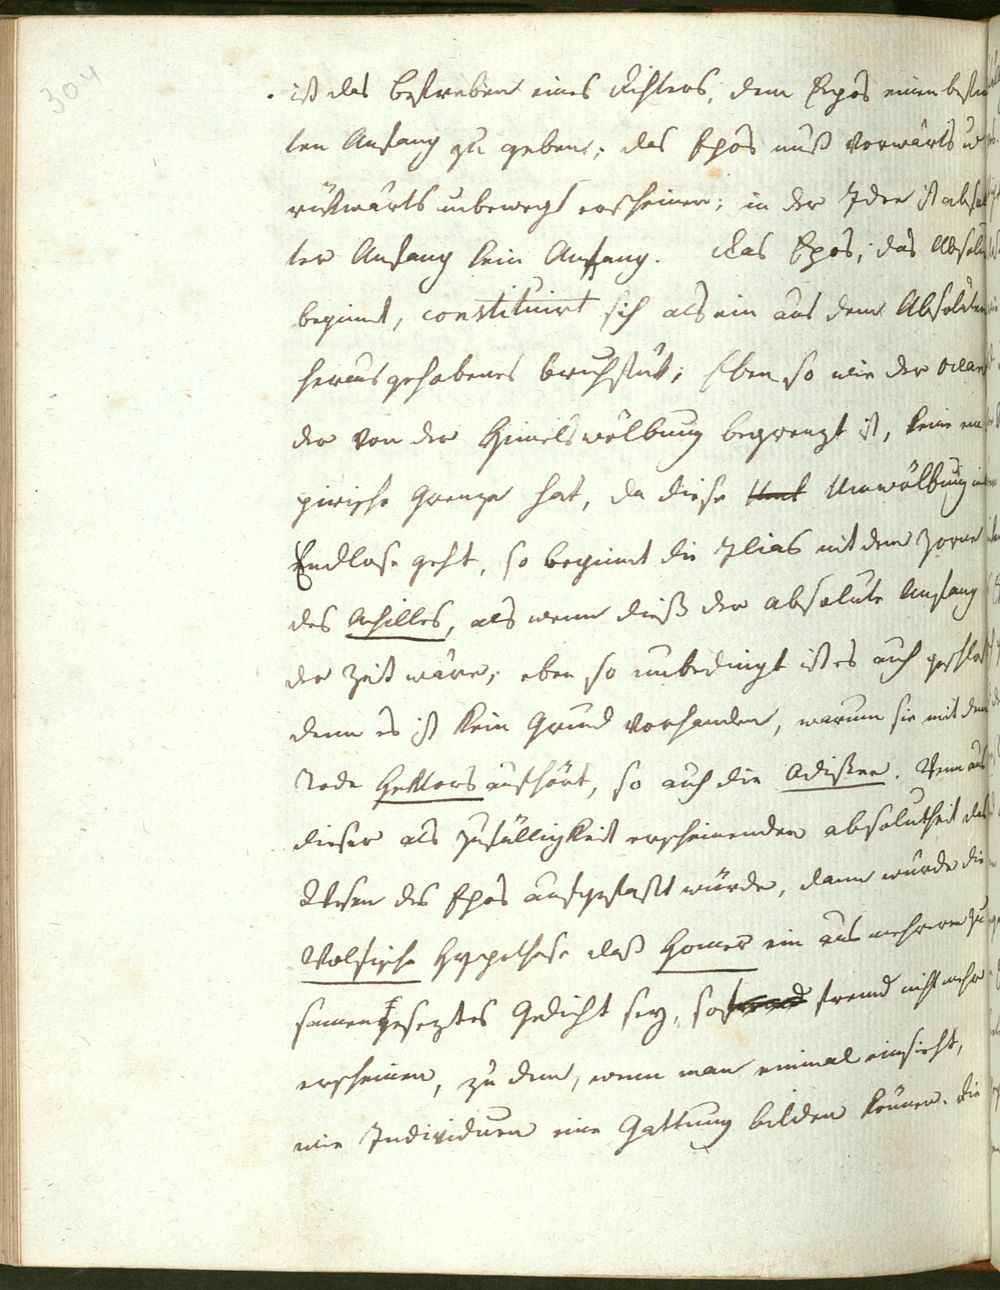 304
ist das Bestreben eines Dichters, dem Epos einen bestim
ten Anfang zu geben; das Epos muß vorwärts u
rükwärts unbewegt erscheinen; in der Idee ist absolu
ter Anfang kein Anfang. Das Epos, das Absolut
beginnt, constituirt sich als ein aus dem Absoluten
herausgehobenes Bruchstük; Eben so wie der Ocean
der von der Himelswölbung begrenzt ist, keine em
pirische Grenze hat, da diese Umwölbung ins
Endlose geht, so beginnt die Ilias mit dem Zorne
des Achilles, als wenn dieß der absolute Anfang
der Zeit wäre; eben so unbedingt ist es auch geschlos
denn es ist kein Grund vorhanden, warum sie mit dem
Tode Hektors aufhört, so auch die Odißee. Wenn aus
dieser als Zufälligkeit erscheinenden absolutheit das
Wesen des Epos aufgefaßt würde, dann würde die
Wolfische Hypothese daß Homer ein aus mehreren zu
samengeseztes Gedicht sey, so fremd nicht mehr
erscheinen, zu dem, wenn man einmal einsieht,
wie Individuen eine Gattung bilden können. Die